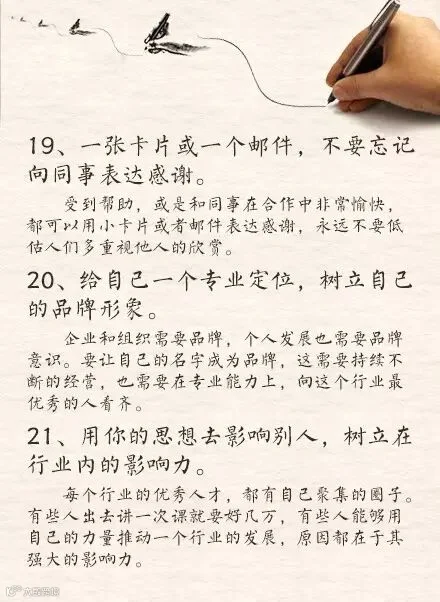 19、一张卡片或一个邮件，不要忘记
向同事表达感谢。
受到帮助，或是和同事在合作中非常愉快，
都可以用小卡片或者邮件表达感谢，永远不要低
估人们多重视他人的欣赏。
20、给自己一个专业定位，树立自己
的品牌形象。
企业和组织需要品牌，个人发展也需要品牌
意识。要让自己的名字成为品牌，这需要持续不
断的经营，也需要在专业能力上，向这个行业最
优秀的人看齐。
21、用你的思想去影响别人，树立在
行业内的影响力。
每个行业的优秀人才，都有自己聚集的圈子。
有些人出去讲一次课就要好几万，有些人能够用
自己的力量推动一个行业的发展，原因都在于其
强大的影响力。